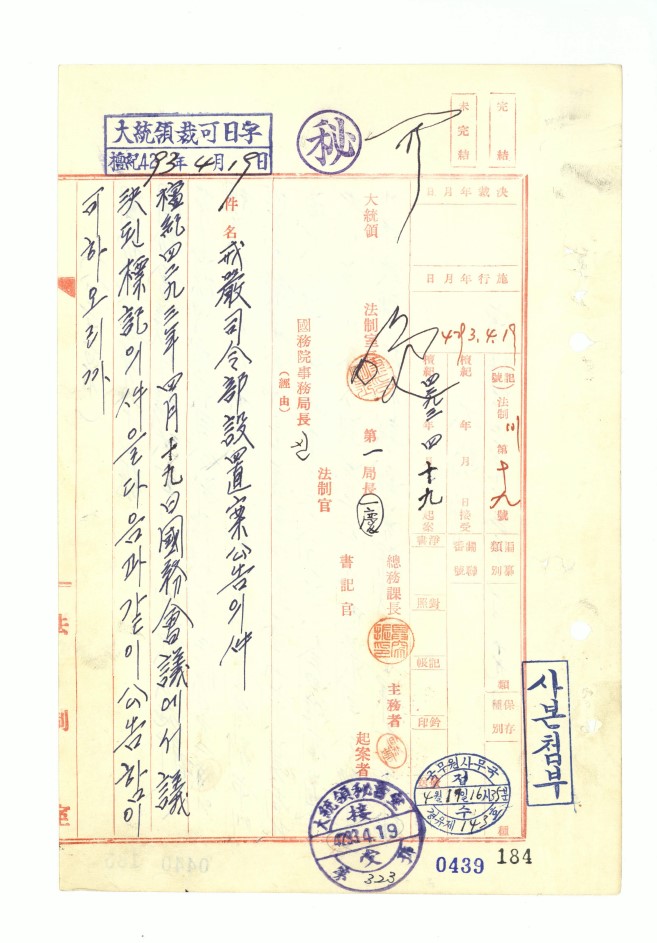 完結
未完結
決裁年月日
施行年月日
4293.4.19
記號
法制 第十九號
檀紀 年 月 日接受
檀紀四二九三年四月十九日起案
類別
番號
淨書
對照
記帳
鈐印
保存種別
大統領
法制室長
第一局長
總務課長
主務者
起案者
法制官
書記官
國務院事務局長
(經由)
秘
大統領裁可日字
檀紀4293年4月19日
件名
戒嚴司令部設置案公告의件
檀紀四二九三年四月十九日國務會議에서議
決된標記의件을다음과같이公告함이
可하오리까
法制室
사본첨부
국무원사무국
접수
4월19일16시35분
大統領秘書室
接受
4293.4.19
第323號
0439
184